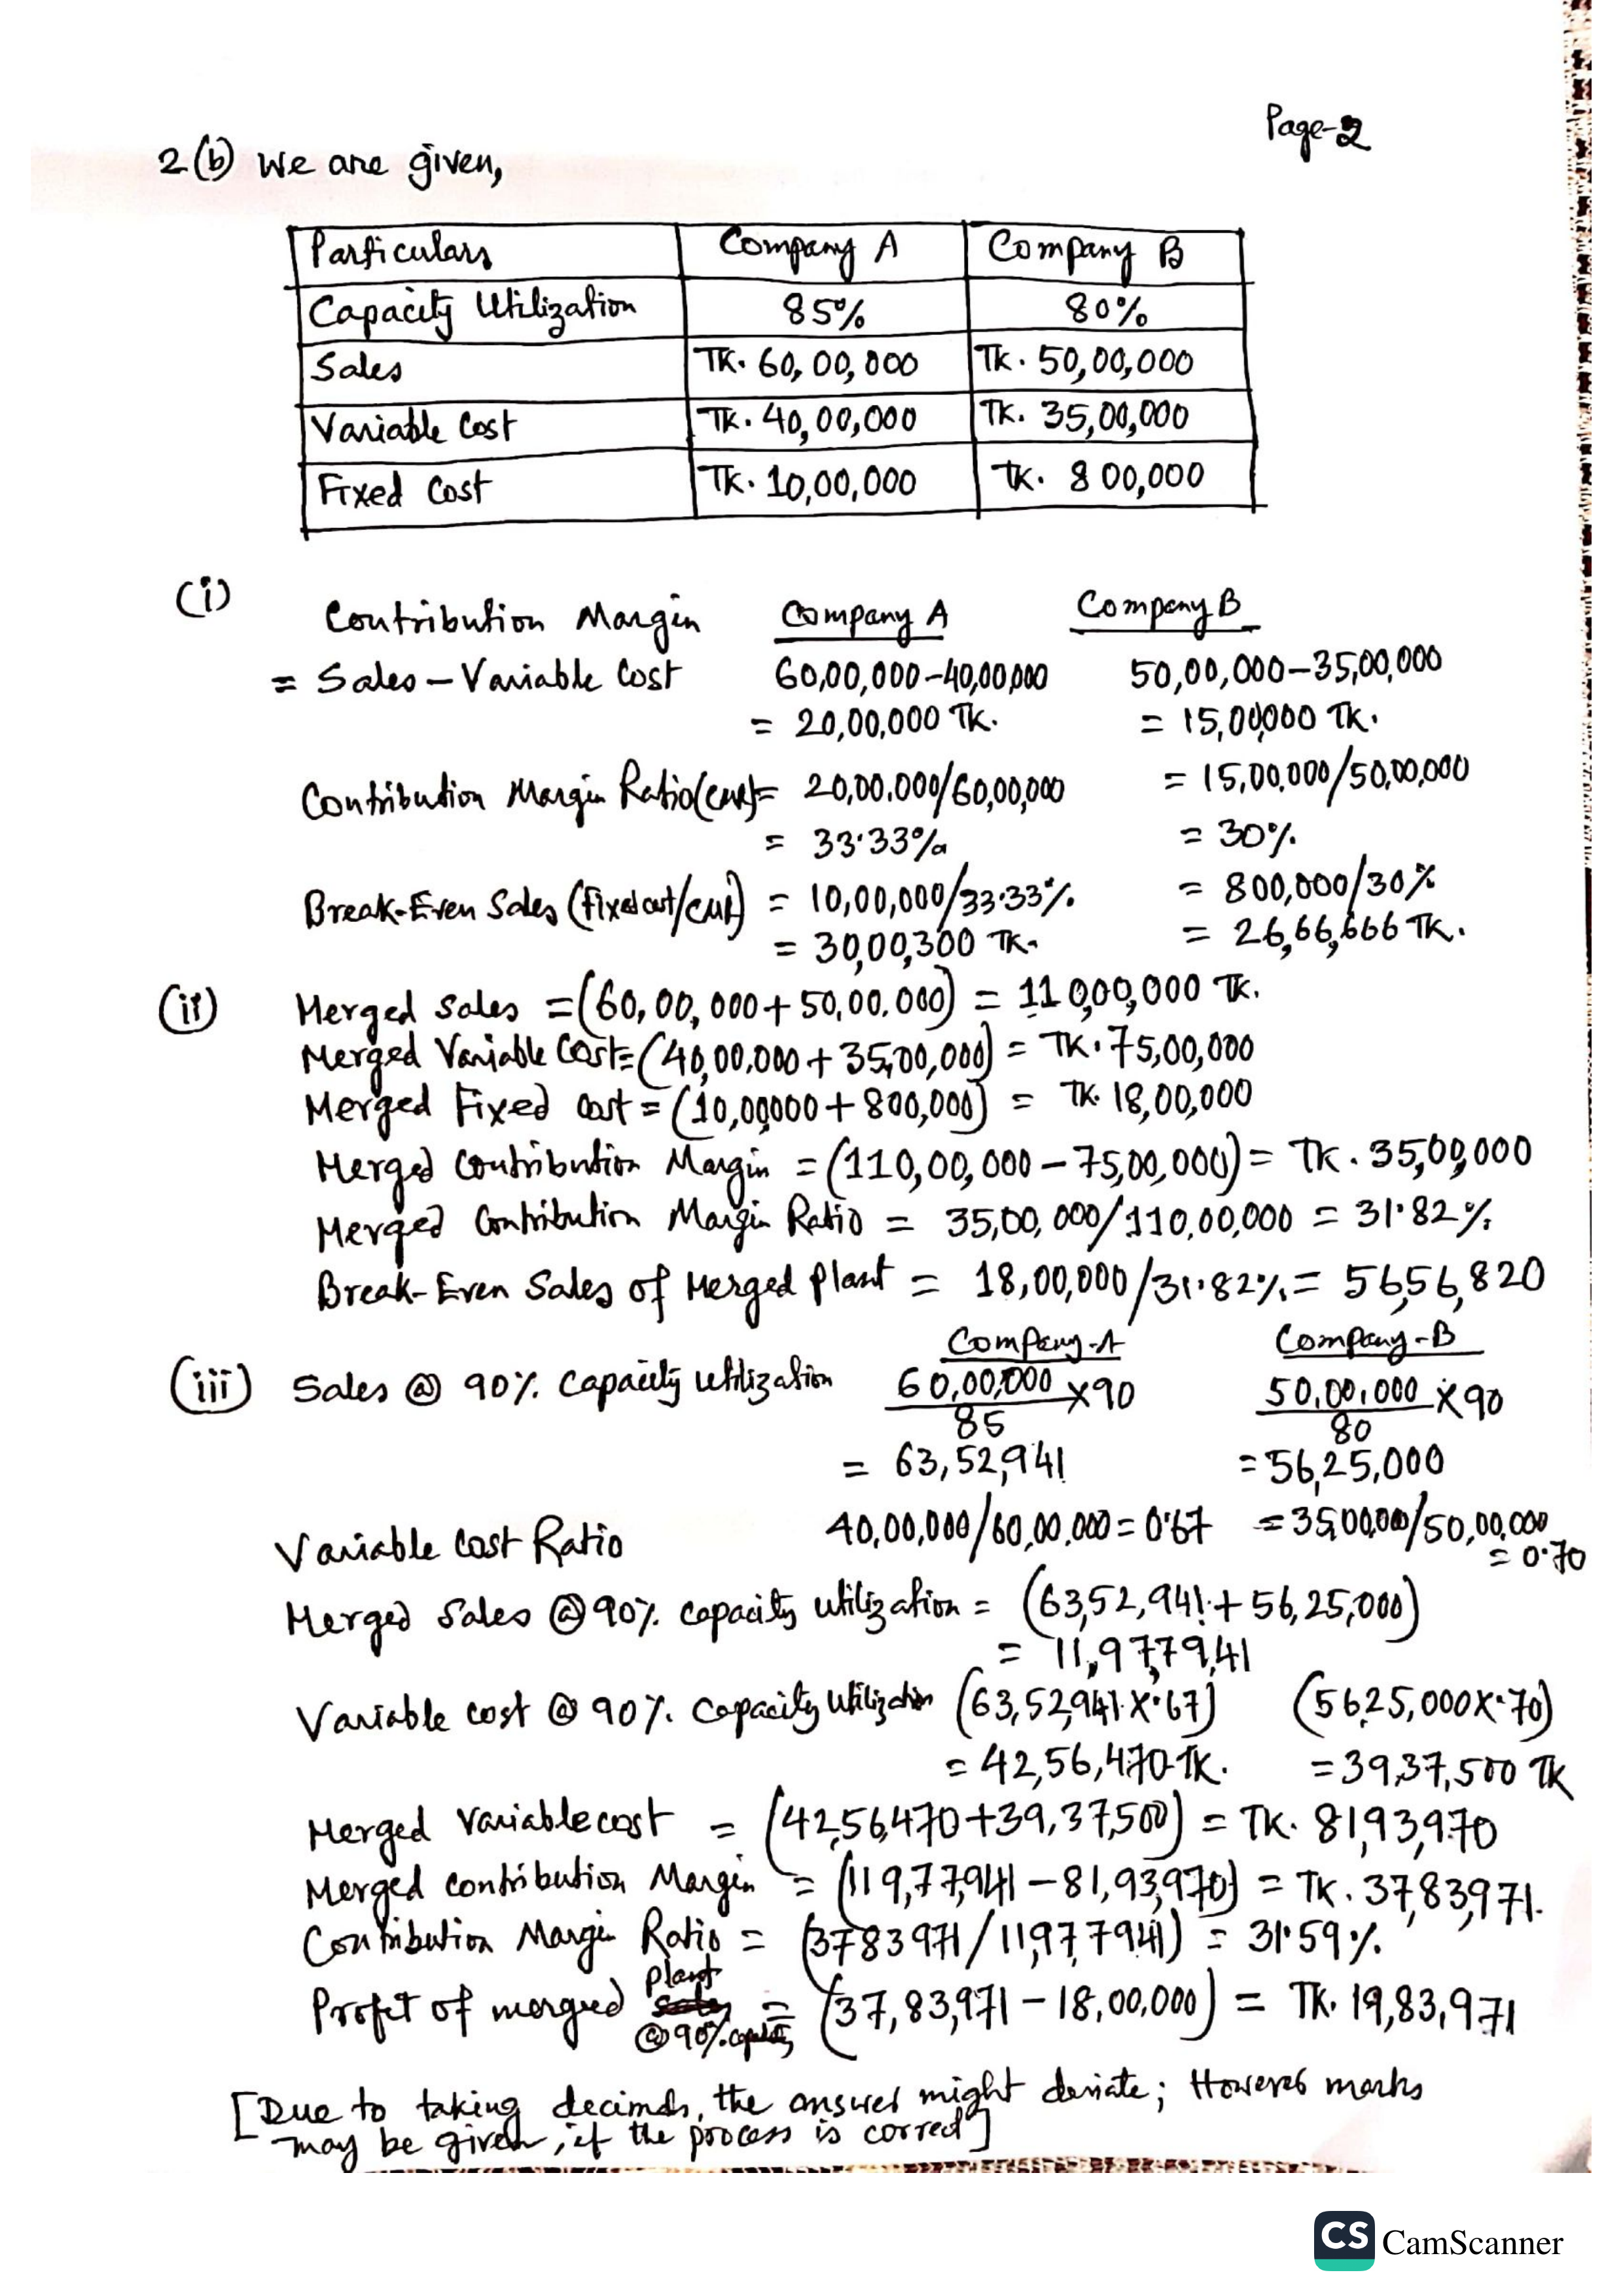 Page-2
2(b) We are given,
Particulars Company A Company B
Capacity Utilization 85% 80%
Sales TK. 60,00,000 Tk. 50,00,000
Variable Cost TK. 40,00,000 TK. 35,00,000
Fixed Cost TK. 10,00,000 TK. 800,000
(i)
Contribution Margin Company A Company B
= Sales - Variable Cost 60,00,000-40,00,000 50,00,000-35,00,000
= 20,00,000 TK. = 15,00,000 TK.
Contribution Margin Ratio(CMR)= 20,00,000/60,00,000 = 15,00,000/50,00,000
= 33.33% = 30%
Break-Even Sales (Fixed cost/CMR) = 10,00,000/33.33% = 800,000/30%
= 30,00,300 TK. = 26,66,666 TK.
(ii) Merged Sales = (60,00,000+50,00,000) = 11000,000 TK.
Merged Variable Cost= (40,00,000+35,00,000) = TK. 75,00,000
Merged Fixed Cost = (10,00,000+800,000) = TK. 18,00,000
Merged Contribution Margin = (110,00,000-75,00,000) = TK. 35,00,000
Merged Contribution Margin Ratio = 35,00,000/110,00,000 = 31.82%
Break-Even Sales of Merged Plant = 18,00,000/31.82% = 56,56,820
Company-A Company-B
(iii) Sales @ 90% Capacity utilization 60,00,000/85 x90 50,00,000/80 x90
= 63,52,941 = 56,25,000
Variable Cost Ratio 40,00,000/60,00,000 = 0.67 = 35,00,000/50,00,000
= 0.70
Merged Sales @ 90% capacity utilization = (63,52,941+56,25,000)
= 11,977,941
Variable cost @ 90% Capacity Utilization (63,52,941x.67) (5625,000x.70)
= 42,56,470 TK. = 39,37,500 TK
Merged Variable cost = (42,56,470+39,37,500) = TK. 81,93,970
Merged contribution Margin = (119,77,941-81,93,970) = TK. 37,83,971.
Contribution Margin Ratio = (3783971/11977941) = 31.59%
Profit of merged plant @90% capacity = (37,83,971-18,00,000) = TK. 19,83,971
[Due to taking decimals, the answer might deviate; However marks
may be given, if the process is correct]
CS CamScanner